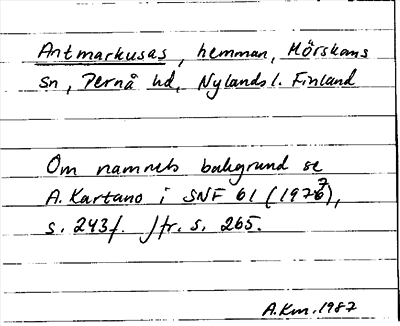 Antmarkusas, hemman, Mörskoms
sn, Pernå hd, Nylands l. Finland
Om namnets bakgrund se
A. Kartano i SNF 61 (1977),
s. 243f. Jfr. s. 265.
A.Km. 1987